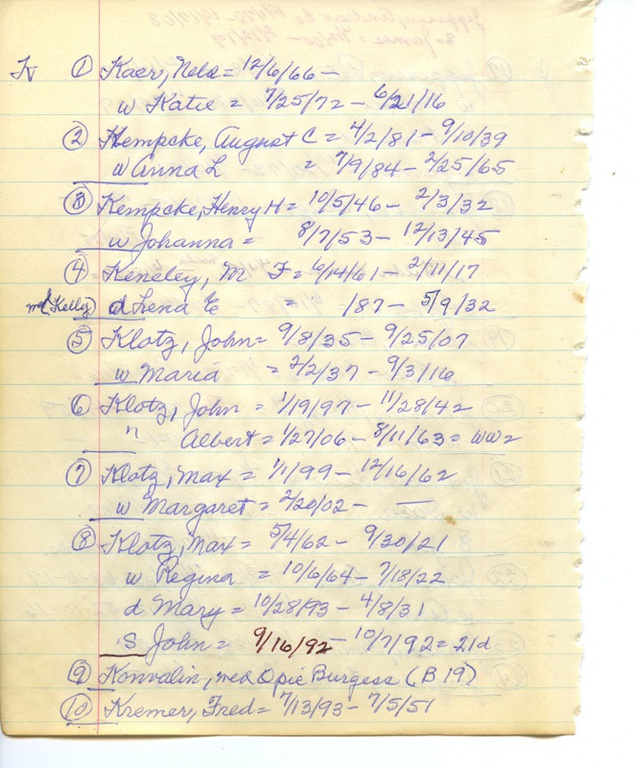 K ① Kaer, Nels = 12/6/66 –
w Katie = 7/25/72 – 6/21/16
② Kempcke, August C = 4/2/81 – 9/10/39
w Anna L = 7/9/84 – 2/25/65
③ Kempcke, Henry H = 10/5/46 – 2/3/32
w Johanna = 8/7/53 – 12/13/45
④ Keneley, M F = 6/14/61 – 2/11/17
(Kelly) d Lena E = /87 – 5/9/32
⑤ Klotz, John = 9/8/35 – 9/25/07
w Maria = 2/2/37 – 9/3/16
⑥ Klotz, John = 1/19/97 – 11/28/42
" Albert = 1/27/06 – 8/11/63 = WW2
⑦ Klotz, Max = 1/1/99 – 12/16/62
w Margaret = 2/20/02 – —
⑧ Klotz, Max = 5/4/62 – 9/30/21
w Regina = 10/6/64 – 7/18/22
d Mary = 10/28/93 – 4/8/31
S John = 9/16/92 – 10/7/92 = 21d
⑨ Konvalin, med Opie Burgess (B 19)
⑩ Kremer, Fred = 7/13/93 – 7/5/51